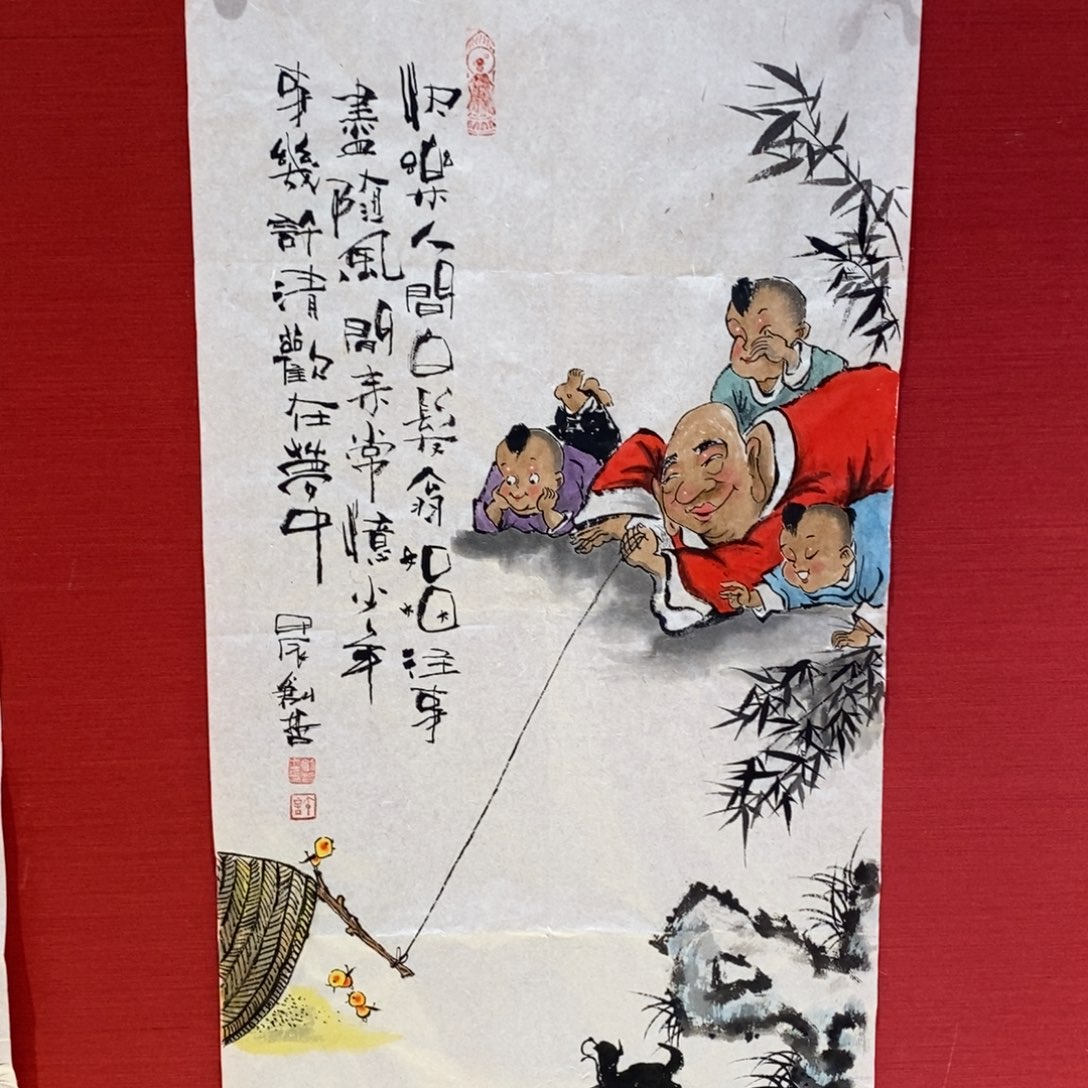 快樂人間白髮翁如烟往事
盡隨風閒來常憶少年
事幾許清歡在夢中
晨